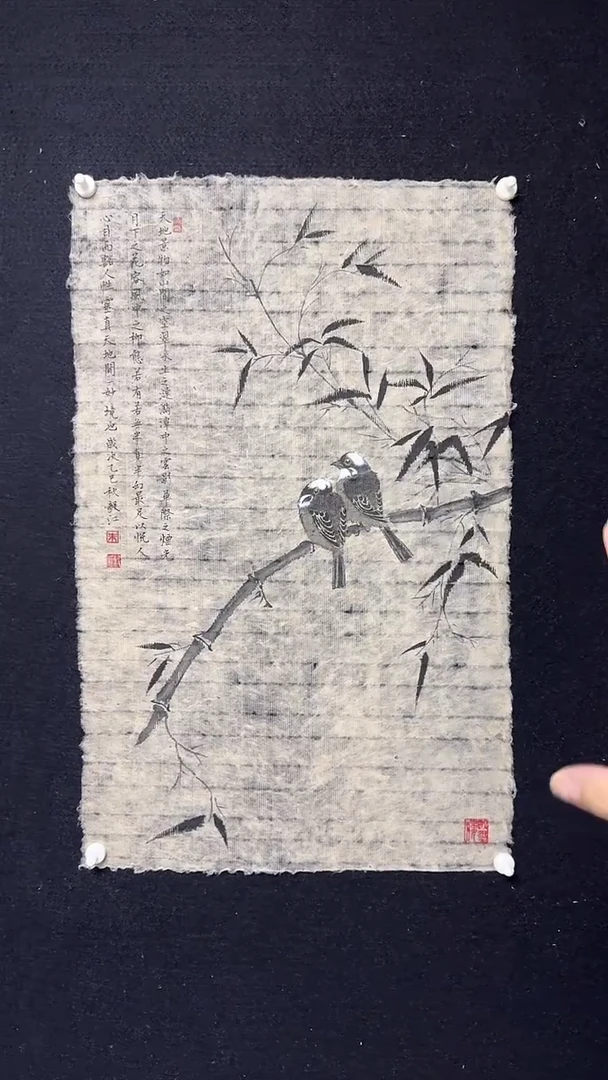 天地景物如山間之空翠水上之漣漪潭中之雲影草際之煙光
月下之花容風中之柳態若有若無半真半幻最足以悅人
心目而豁人性靈真天地間一妙境也 歲次乙巳秋